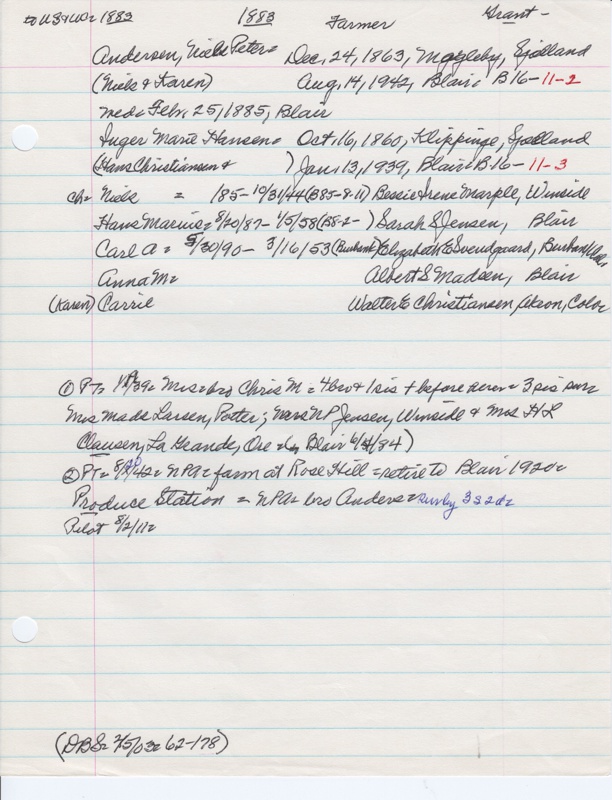 to US & WA= 1883 1883 Farmer Grant-
Andersen, Niels Peter= Dec, 24, 1863, Magleby, Sjolland
(Niels & Karen) Aug, 14, 1942, Blair= B16-11-2
med= Febr. 25, 1885, Blair
Inger Marie Hansen= Oct, 16, 1860, Klippinge, Sjolland
(Hans Christiansen & ) Jan, 13, 1939, Blair= B16-11-3
ch= Niels = 185-10/31/44 (B85-8-11) Bessie Irene Marple, Winside
Hans Marius= 8/20/87- 4/5/58 (B8-2- ) Sarah S Jensen, Blair
Carl A= 5/30/90- 3/16/53 (Burbank) Elizabeth E Svendgaard, Burbank
Anna M= Albert S Madsen, Blair
(Karen) Carrie Walter E Christiansen, Akron, Colo
① PT= Mrs= bro Chris M= 4 bro & 1 sis + before = 3 sis surv
Mrs Mads Larsen, Potter; Mars NP Jensen, Winside & Mrs HL
Clausen, La Grande, Ore Blair
② PT= 8/20/42= NPA= farm at Rose Hill= retire to Blair 1920=
Produce Station = NPA= bro Anders= surv by 3s 2d=
Pilot 8/2/11=
(DBS= 62-178)